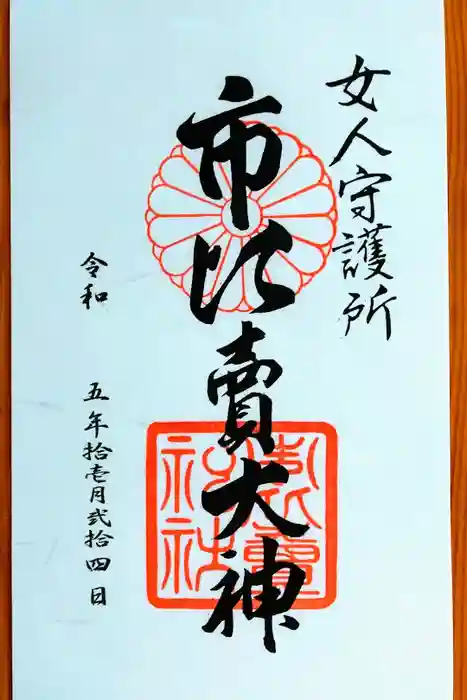 女人守護所
市比賣大神
令和 五年拾壱月弐拾四日